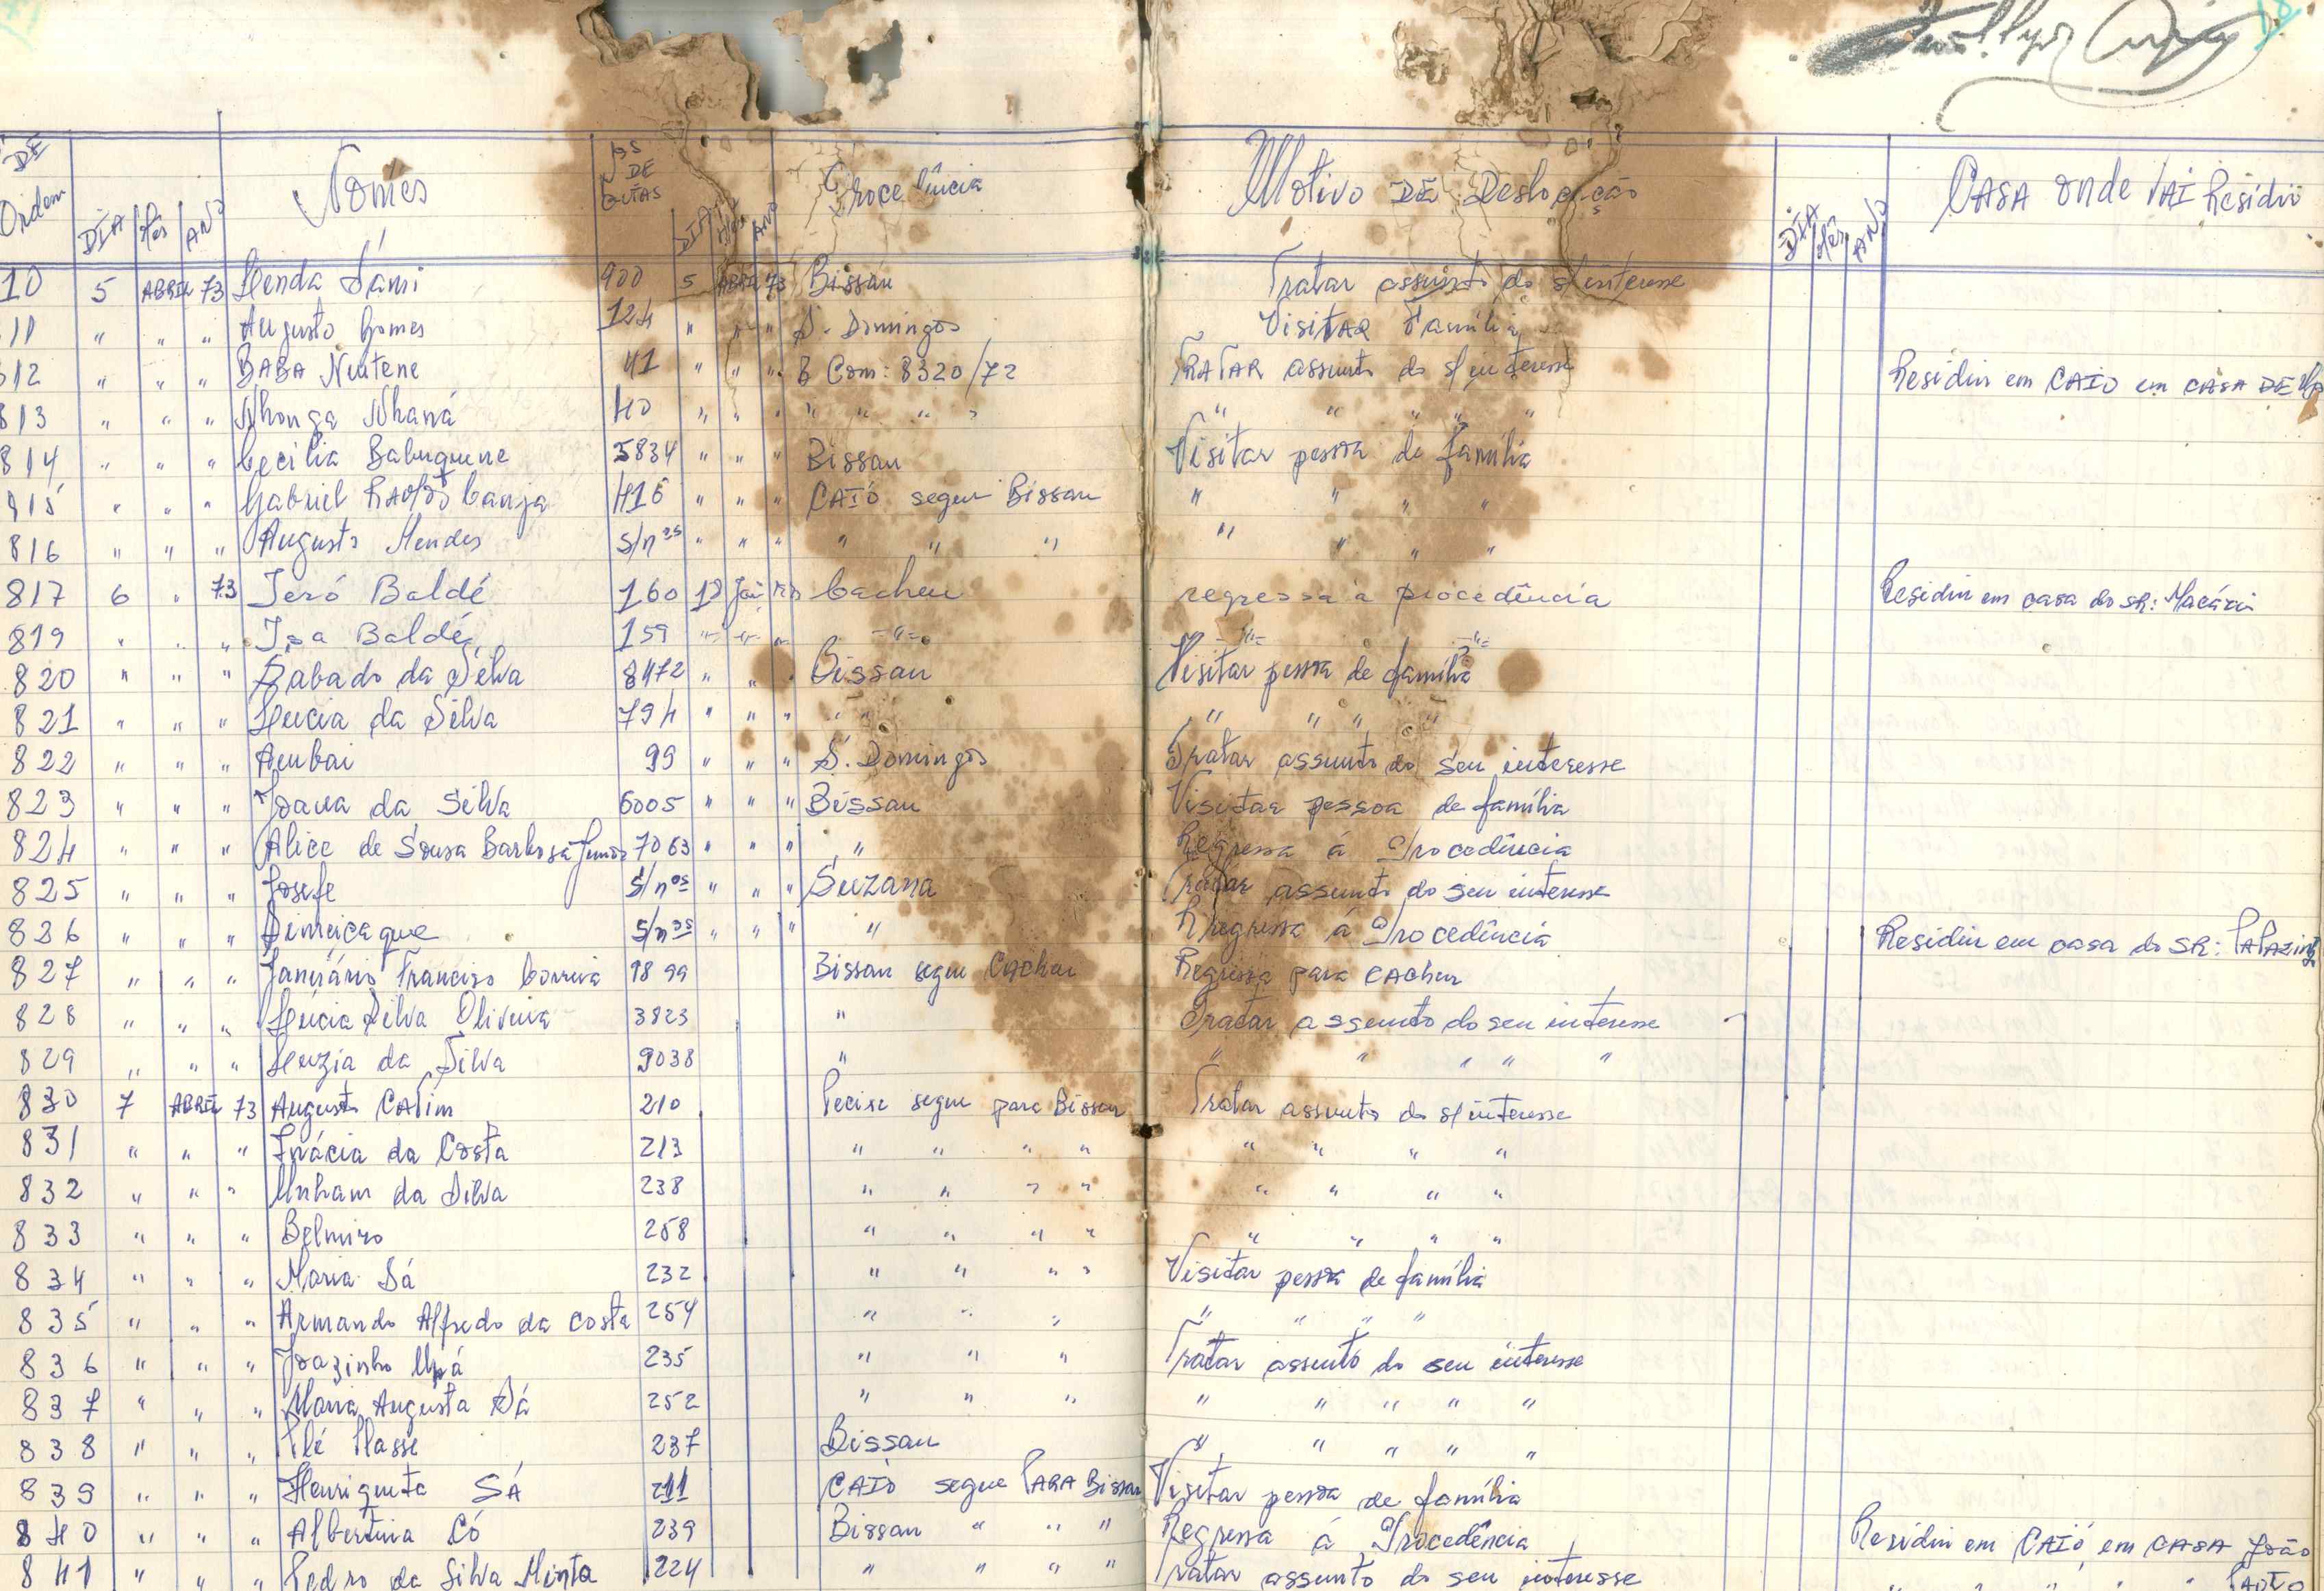 DE
Ordem DIA Mês ANO Nomes DE GUIAS DIA Mês ANO Procedência Motivo DE Deslocação DIA Mês ANO CASA onde VAI Residir
10 5 ABRIL 73 900 5 ABRIL 73 Bissau Tratar assunto do s/ interesse
11 " " " Augusto Gomes 124 " " " S. Domingos VisitAR Família
812 " " " BABA 41 " " " B Com: 8320/72 TRATAR assunto do s/ interesse Residir em CAIO em CASA DE
813 " " " Nhonga Nhaná 40 " " " " " " " " " " " "
814 " " " Cecília Babuquene 5834 " " " Bissau Visitar pessoa de família
815 " " " Gabriel 416 " " " CAIÓ segue Bissau " " " "
816 " " " Augusto Mendes S/nos " " " " " " " " " "
817 6 " 73 Jeró Baldé 160 18 73 Cacheu regressa à procedência Residir em casa do SR: Macário
819 " " " Isa Baldé 159 " " " -"- -"- -"-
820 " " " Sabado da Silva 8472 " " " Bissau Visitar pessoa de família
821 " " " Lucia da Silva 794 " " " " " " " " "
822 " " " 99 " " " S. Domingos Tratar assunto do seu interesse
823 " " " Joana da Silva 6005 " " " Bissau Visitar pessoa de família
824 " " " Alice de Sousa Barbosa 7063 " " " " Regressa á Procedência
825 " " " Josefe S/nos " " " Suzana Tratar assunto do seu interesse
826 " " " S/nos " " " " Regressa á Procedência Residir em casa do SR:
827 " " " Januário Francisco Correia 9899 Bissau segue Cacheu Regressa para CAcheu
828 " " " Lucia Silva Oliveira 3823 " Tratar assunto do seu interesse
829 " " " Luzia da Silva 9038 " " " " " "
830 7 ABRIL 73 Augusto CATim 210 Pecixe segue para Bissau Tratar assunto do s/ interesse
831 " " " Inácia da Costa 213 " " " " " " " "
832 " " " da Silva 238 " " " " " " " "
833 " " " Belmiro 258 " " " " " " " "
834 " " " Maria Sá 232 " " " " Visitar pessoa de família
835 " " " Armando Alfredo da Costa 254 " " " " " " "
836 " " " Joazinho 235 " " " Tratar assunto do seu interesse
837 " " " Maria Augusta Sá 252 " " " " " " " "
838 " " " 237 Bissau " " " " "
839 " " " Henriqueta SÁ 211 CAIÓ segue PARA Bissau Visitar pessoa de família
840 " " " Albertina Có 239 Bissau " " " Regressa á Procedência Residir em CAIÓ, em CASA João
841 " " " Pedro da Silva 224 " " " " Tratar assunto do seu interesse " "